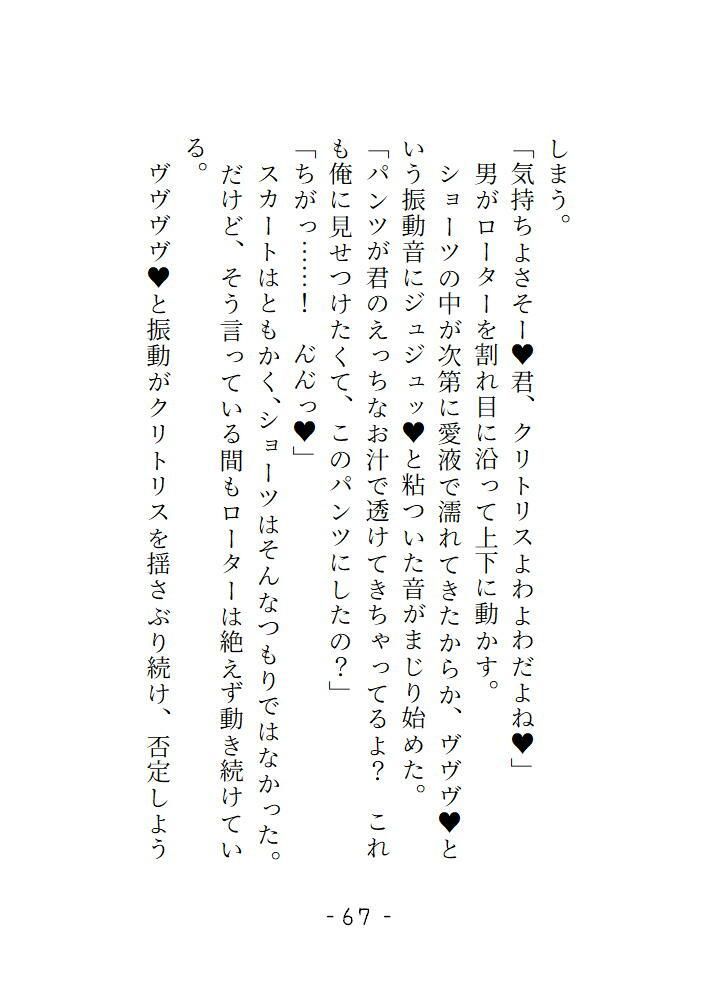 しまう。
「気持ちよさそー♥君、クリトリスよわよわだよね♥」
男がローターを割れ目に沿って上下に動かす。
ショーツの中が次第に愛液で濡れてきたからか、ヴヴヴ♥と
いう振動音にジュジュッ♥と粘ついた音がまじり始めた。
「パンツが君のえっちなお汁で透けてきちゃってるよ？　これ
も俺に見せつけたくて、このパンツにしたの？」
「ちがっ……！　ん゛ん゛っ♥」
スカートはともかく、ショーツはそんなつもりではなかった。
だけど、そう言っている間もローターは絶えず動き続けてい
る。
ヴヴヴヴ♥と振動がクリトリスを揺さぶり続け、否定しよう
- 67 -